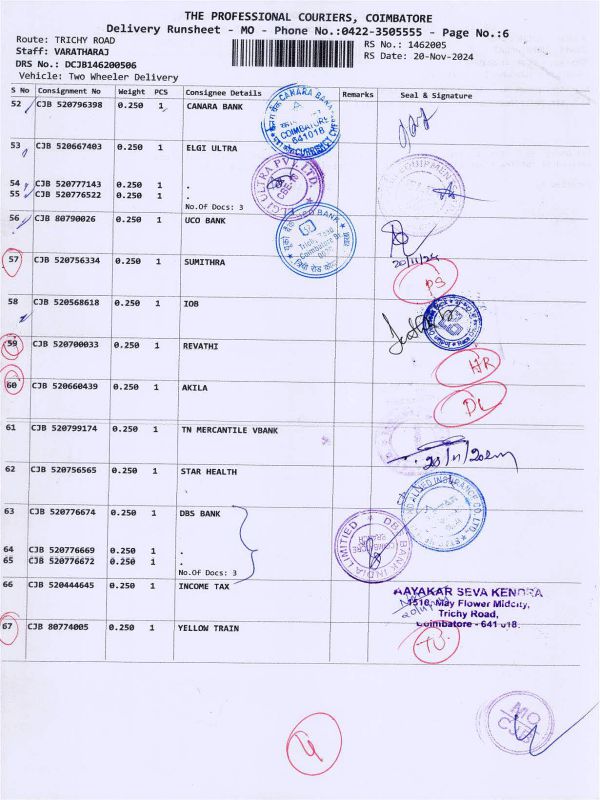 THE PROFESSIONAL COURIERS, COIMBATORE
Delivery Runsheet - MO - Phone No.:0422-3505555 - Page No.:6
Route: TRICHY ROAD
RS No.: 1462005
Staff: VARATHARAJ
RS Date: 20-Nov-2024
DRS No.: DCJB146200506
Vehicle: Two Wheeler Delivery
S No Consignment No Weight PCS Consignee Details Remarks Seal & Signature
52 CJB 520796398 0.250 1 CANARA BANK
CANARA BANK
COIMBATORE
641018
53 CJB 520667403 0.250 1 ELGI ULTRA
ELGI ULTRA PVT. LTD.
54 CJB 520777143 0.250 1 .
55 CJB 520776522 0.250 1 .
No.Of Docs: 3
56 CJB 80790026 0.250 1 UCO BANK
UCO BANK
20/11/24
57 CJB 520756334 0.250 1 SUMITHRA
PS
58 CJB 520568618 0.250 1 IOB
59 CJB 520700033 0.250 1 REVATHI
HR
60 CJB 520660439 0.250 1 AKILA
DL
61 CJB 520799174 0.250 1 TN MERCANTILE VBANK
62 CJB 520756565 0.250 1 STAR HEALTH
63 CJB 520776674 0.250 1 DBS BANK
DBS BANK INDIA LIMITED
COIMBATORE
BRANCH
64 CJB 520776669 0.250 1 .
65 CJB 520776672 0.250 1 .
No.Of Docs: 3
66 CJB 520444645 0.250 1 INCOME TAX
AAYAKAR SEVA KENDRA
1510, May Flower Midcity,
Trichy Road,
Coimbatore - 641 018.
67 CJB 80774005 0.250 1 YELLOW TRAIN
MO
CJB